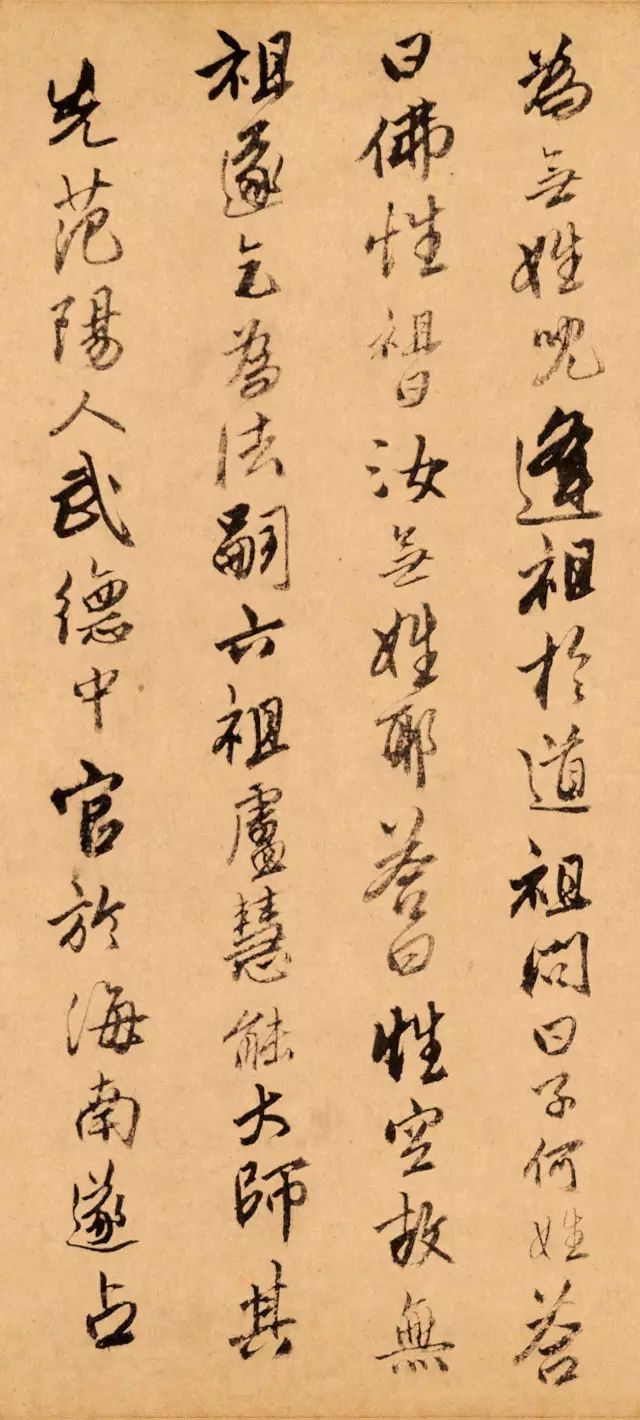 為無姓兒逢祖於道祖問曰子何姓荅
曰佛性祖曰汝無姓耶荅曰性空故無
祖遂乞為法嗣六祖盧慧能大師其
先范陽人武德中官於海南遂占